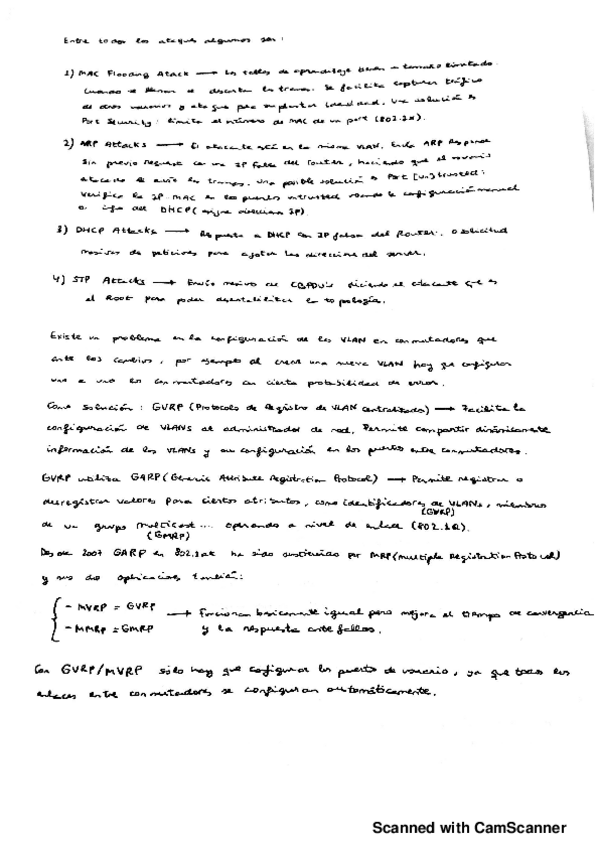 Entre todos los ataques algunos son:
1) MAC Flooding Atack → Las tablas de aprendizaje tienen un tamaño limitado.
Cuando se llenan se descartan las tramas. Se facilita capturar tráfico
de otros usuarios y ataques para suplantar identidad. Una solución es
Port Security: limita el número de MAC de un port (802.1x).
2) ARP Attacks → El atacante está en la misma VLAN. Envía ARP Response
sin previo request con una IP falsa del router, haciendo que el usuario
atacado le envíe las tramas. Una posible solución es Port [un]trusted:
verifica la IP MAC en los puertos untrusted usando la configuración manual
o info del DHCP (asigna direcciones IP)
3) DHCP Attacks → Respuesta a DHCP con IP falsa del Router. O solicitud
masiva de peticiones para agotar las direcciones del server.
4) STP Attacks → Envío masivo de CBPDU's diciendo el atacante que es
el Root para poder desestabilizar la topología.
Existe un problema en la configuración de las VLAN en conmutadores que
ante los cambios, por ejemplo al crear una nueva VLAN hay que configurar
uno a uno los conmutadores con cierta probabilidad de error.
Como solución: GVRP (Protocolo de Registro de VLAN centralizado) → Facilita la
configuración de VLANs al administrador de red. Permite compartir dinámicamente
información de las VLANs y su configuración en los puertos entre conmutadores.
GVRP utiliza GARP (Generic Attribute Registration Protocol) → Permite registrar o
desregistrar valores para ciertos atributos, como identificadores de VLANs, miembros
(GVRP)
de un grupo multicast... operando a nivel de enlace (802.1Q).
(GMRP)
Desde 2007 GARP en 802.1ak ha sido sustituido por MRP (Multiple Registration Protocol)
y sus dos aplicaciones también:
- MVRP = GVRP
- MMRP = GMRP
→ Funcionan basicamente igual pero mejora el tiempo de convergencia
y la respuesta ante fallos.
Con GVRP/MVRP sólo hay que configurar los puertos de usuario, ya que todos los
enlaces entre conmutadores se configuran automáticamente.
Scanned with CamScanner